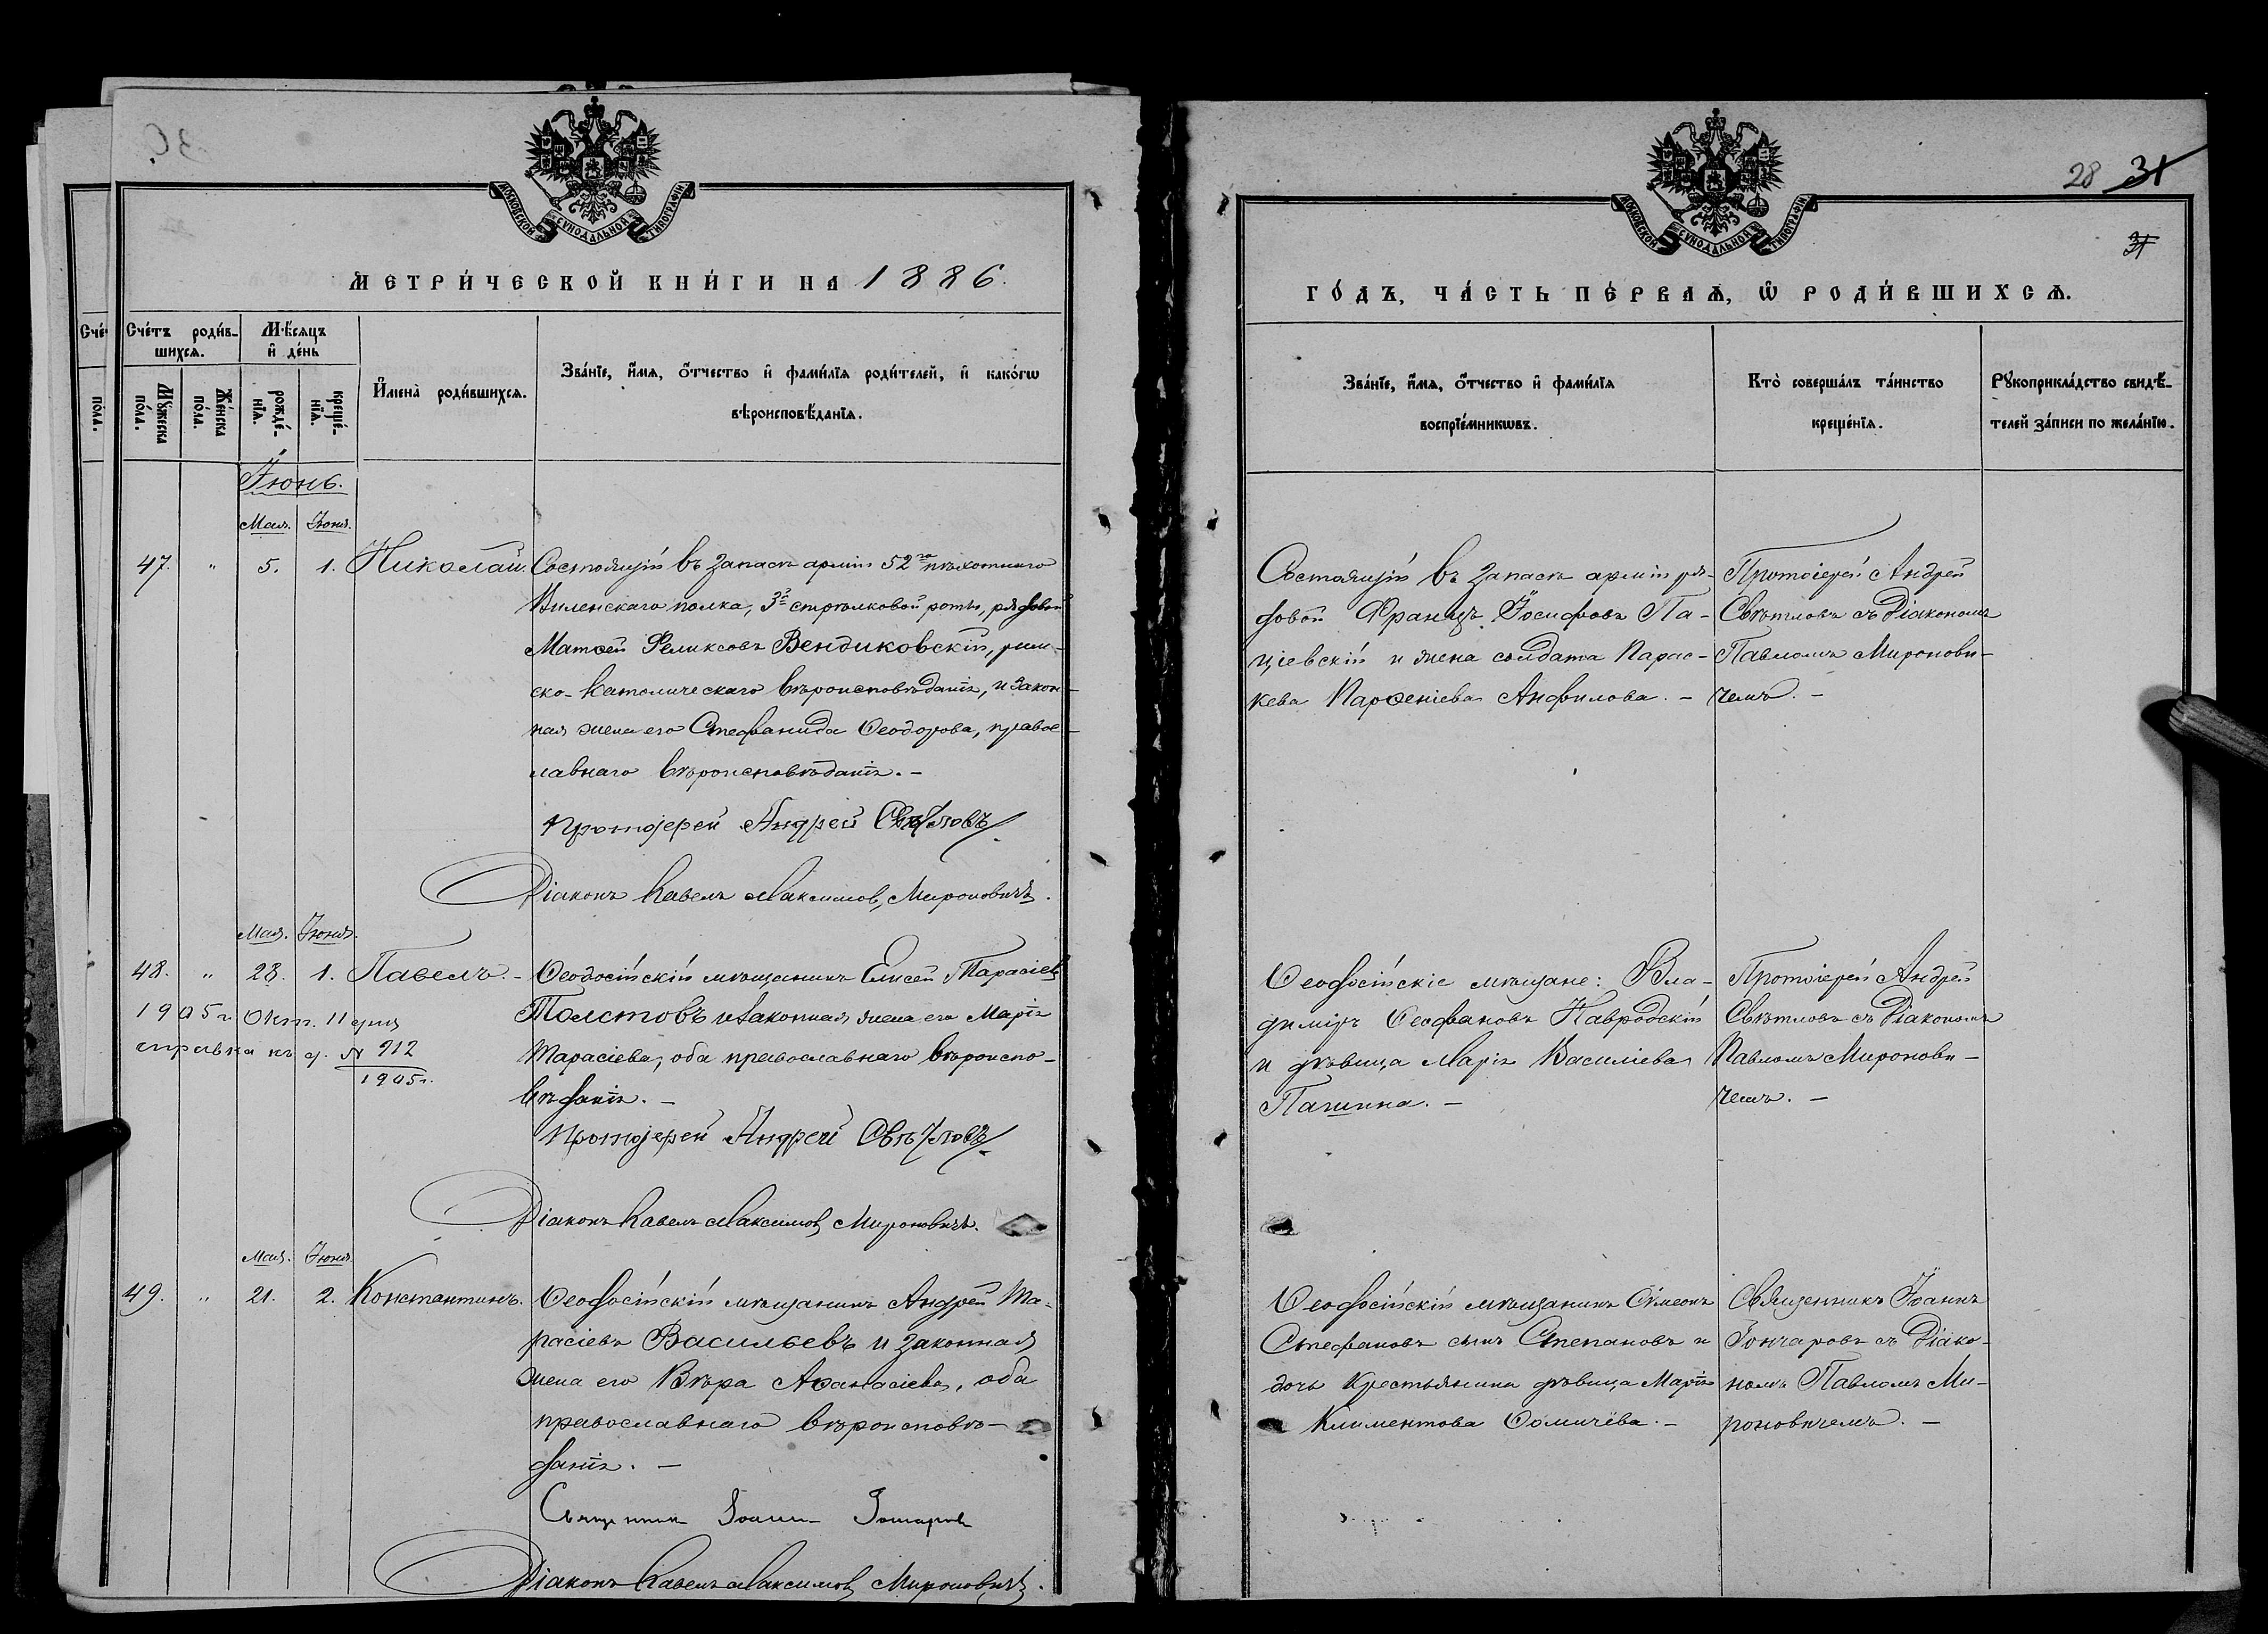 МОСКОВСКОЙ СѴНОДАЛЬНОЙ ТИПОГРАФІИ
МЕТРИ́ЧЕСКОЙ КНИ́ГИ НА 1886.
Сче́тъ роди́в-
шихсѧ.
Мѣ́сяцъ
и҆ де́нь
Мꙋ́жеска по́ла.
Же́нска по́ла.
рожде́-
нїѧ.
креще́-
нїѧ.
И҆мена̀ роди́вшихсѧ.
Зва́нїе, и҆́мѧ, ѻ҆́тчество и҆ фами́лїѧ роди́телей, и҆ како́гѡ
вѣроисповѣ́данїѧ.
Іюнь.
Мая. Іюня.
47. " 5. 1. Николай. Состоящій въ запасѣ арміи 52го пѣхотнаго
Виленскаго полка, 3й стрѣлковой роты, рядовой
Матѳей Феликсовъ Вендиковскій, рим-
ско-католическаго вѣроисповѣданія, и закон-
ная жена его Стефанида Ѳеодорова, правос-
лавнаго вѣроисповѣданія. –
Протоіерей Андрей Свѣтловъ
Діаконъ Павелъ Максимовъ Мироновичъ.
Мая. Іюня.
48. " 28. 1. Павелъ. – Ѳеодосійскій мѣщанинъ Елисей Тарасіевъ
Толстовъ и законная жена его Марія
Тарасіева, оба православнаго вѣроиспо-
вѣданія. –
1905 г. Окт. 11 дня
справка къ д. № 912
1905 г.
Протоіерей Андрей Свѣтловъ
Діаконъ Павелъ Максимовъ Мироновичъ.
Мая. Іюня.
49. " 21. 2. Константинъ. Ѳеодосійскій мѣщанинъ Андрей Та-
расіевъ Васильевъ и законная
жена его Вѣра Аѳанасіева, оба
православнаго вѣроисповѣ-
данія. –
Священникъ Іоаннъ Гончаровъ
Діаконъ Павелъ Максимовъ Мироновичъ.
28 31
31
МОСКОВСКОЙ СѴНОДАЛЬНОЙ ТИПОГРАФІИ
ГО́ДЪ, ЧА́СТЬ ПЕ́РВАѦ, Ѡ҆ РОДИ́ВШИХСѦ.
Зва́нїе, и҆́мѧ, ѻ҆́тчество и҆ фами́лїѧ
воспрїе́мникѡвъ.
Кто̀ соверша́лъ та́инство
креще́нїѧ.
Рꙋкоприкла́дство свидѣ́-
телей за́писи по жела́нїю.
Состоящій въ запасѣ арміи ря-
довой Францъ Іосифовъ Па-
ціевскій и жена солдата Парас-
кева Парѳеніева Анфилова. –
Протоіерей Андрей
Свѣтловъ съ Діакономъ
Павломъ Миронови-
чемъ. –
Ѳеодосійскіе мѣщане: Вла-
диміръ Ѳеофановъ Навродскій
и дѣвица Марія Василіева
Пагинна. –
Протоіерей Андрей
Свѣтловъ съ Діакономъ
Павломъ Миронови-
чемъ. –
Ѳеодосійскій мѣщанинъ Сѵмеонъ
Стефановъ сынъ Степановъ и
дочь крестьянина дѣвица Марія
Климентова Ѳомичёва. –
Священникъ Іоаннъ
Гончаровъ съ Діако-
номъ Павломъ Ми-
роновичемъ. –